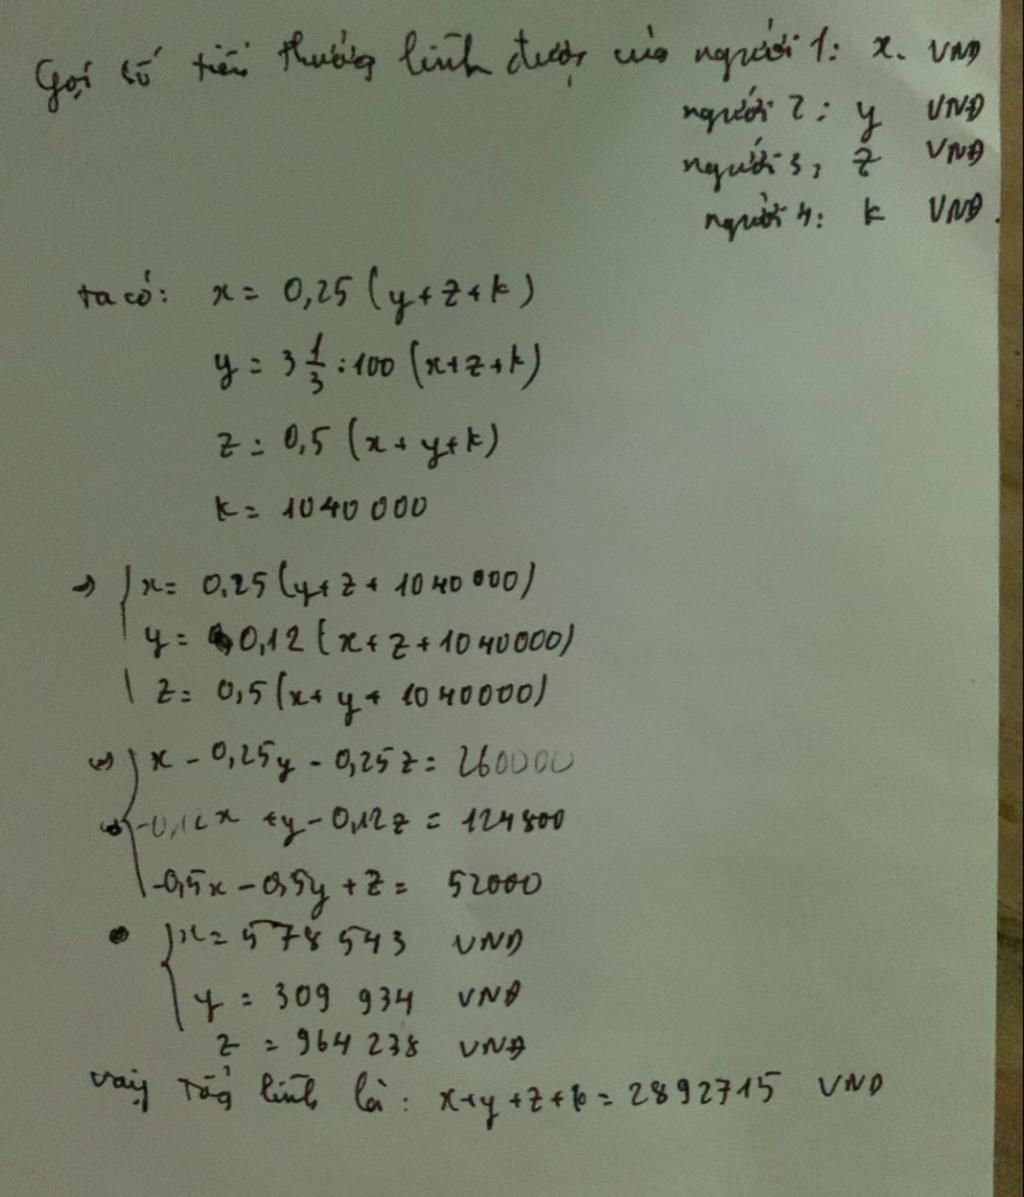 Gọi số tiền thưởng lĩnh được của người 1: x. VNĐ
người 2: y VNĐ
người 3, z VNĐ
người 4: k VNĐ.
ta có: x = 0,25 (y+z+k)
y = 3 1/3 : 100 (x+z+k)
z = 0,5 (x+y+k)
k = 1040 000
→ { x = 0,25 (y+z+1040000)
y = 0,12 (x+z+1040000)
z = 0,5 (x+y+1040000)
⇔ { x - 0,25y - 0,25z = 260000
-0,12x + y - 0,12z = 124800
-0,5x - 0,5y + z = 52000
{ x = 578 543 VNĐ
y = 309 934 VNĐ
z = 964 238 VNĐ
Vậy tổng lĩnh là: x+y+z+k = 2892715 VNĐ